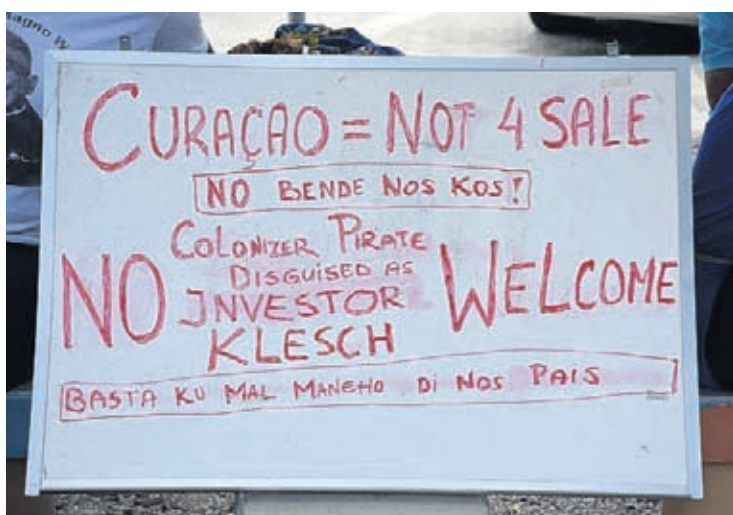 CURAÇAO = NOT 4 SALE
NO BENDE NOS KOS!
NO COLONIZER PIRATE DISGUISED AS INVESTOR KLESCH WELCOME
BASTA KU MAL MANEHO DI NOS PAIS